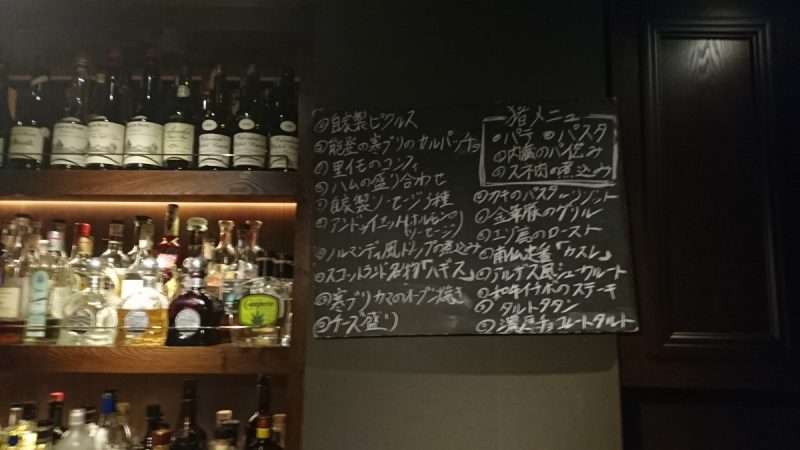 ◎自家製ピクルス
◎能登の寒ブリのカルパッチョ
◎里イモのコンフィ
◎ハムの盛り合わせ
◎自家製ソーセージ3種
◎アンドゥイエット(ホルモンのソーセージ)
◎ノルマンディ風トリップの煮込み
◎スコットランド名物「ハギス」
◎寒ブリカマのオーブン焼き
◎チーズ盛り
猪メニュー
◎パテ ◎パスタ
◎内臓のパイ包み
◎スネ肉の煮込み
◎カキのパスタorリゾット
◎金華豚のグリル
◎エゾ鹿のロースト
◎南仏定番「カスレ」
◎アルザス風シュークルート
◎和牛イチボのステーキ
◎タルトタタン
◎濃厚チョコレートタルト